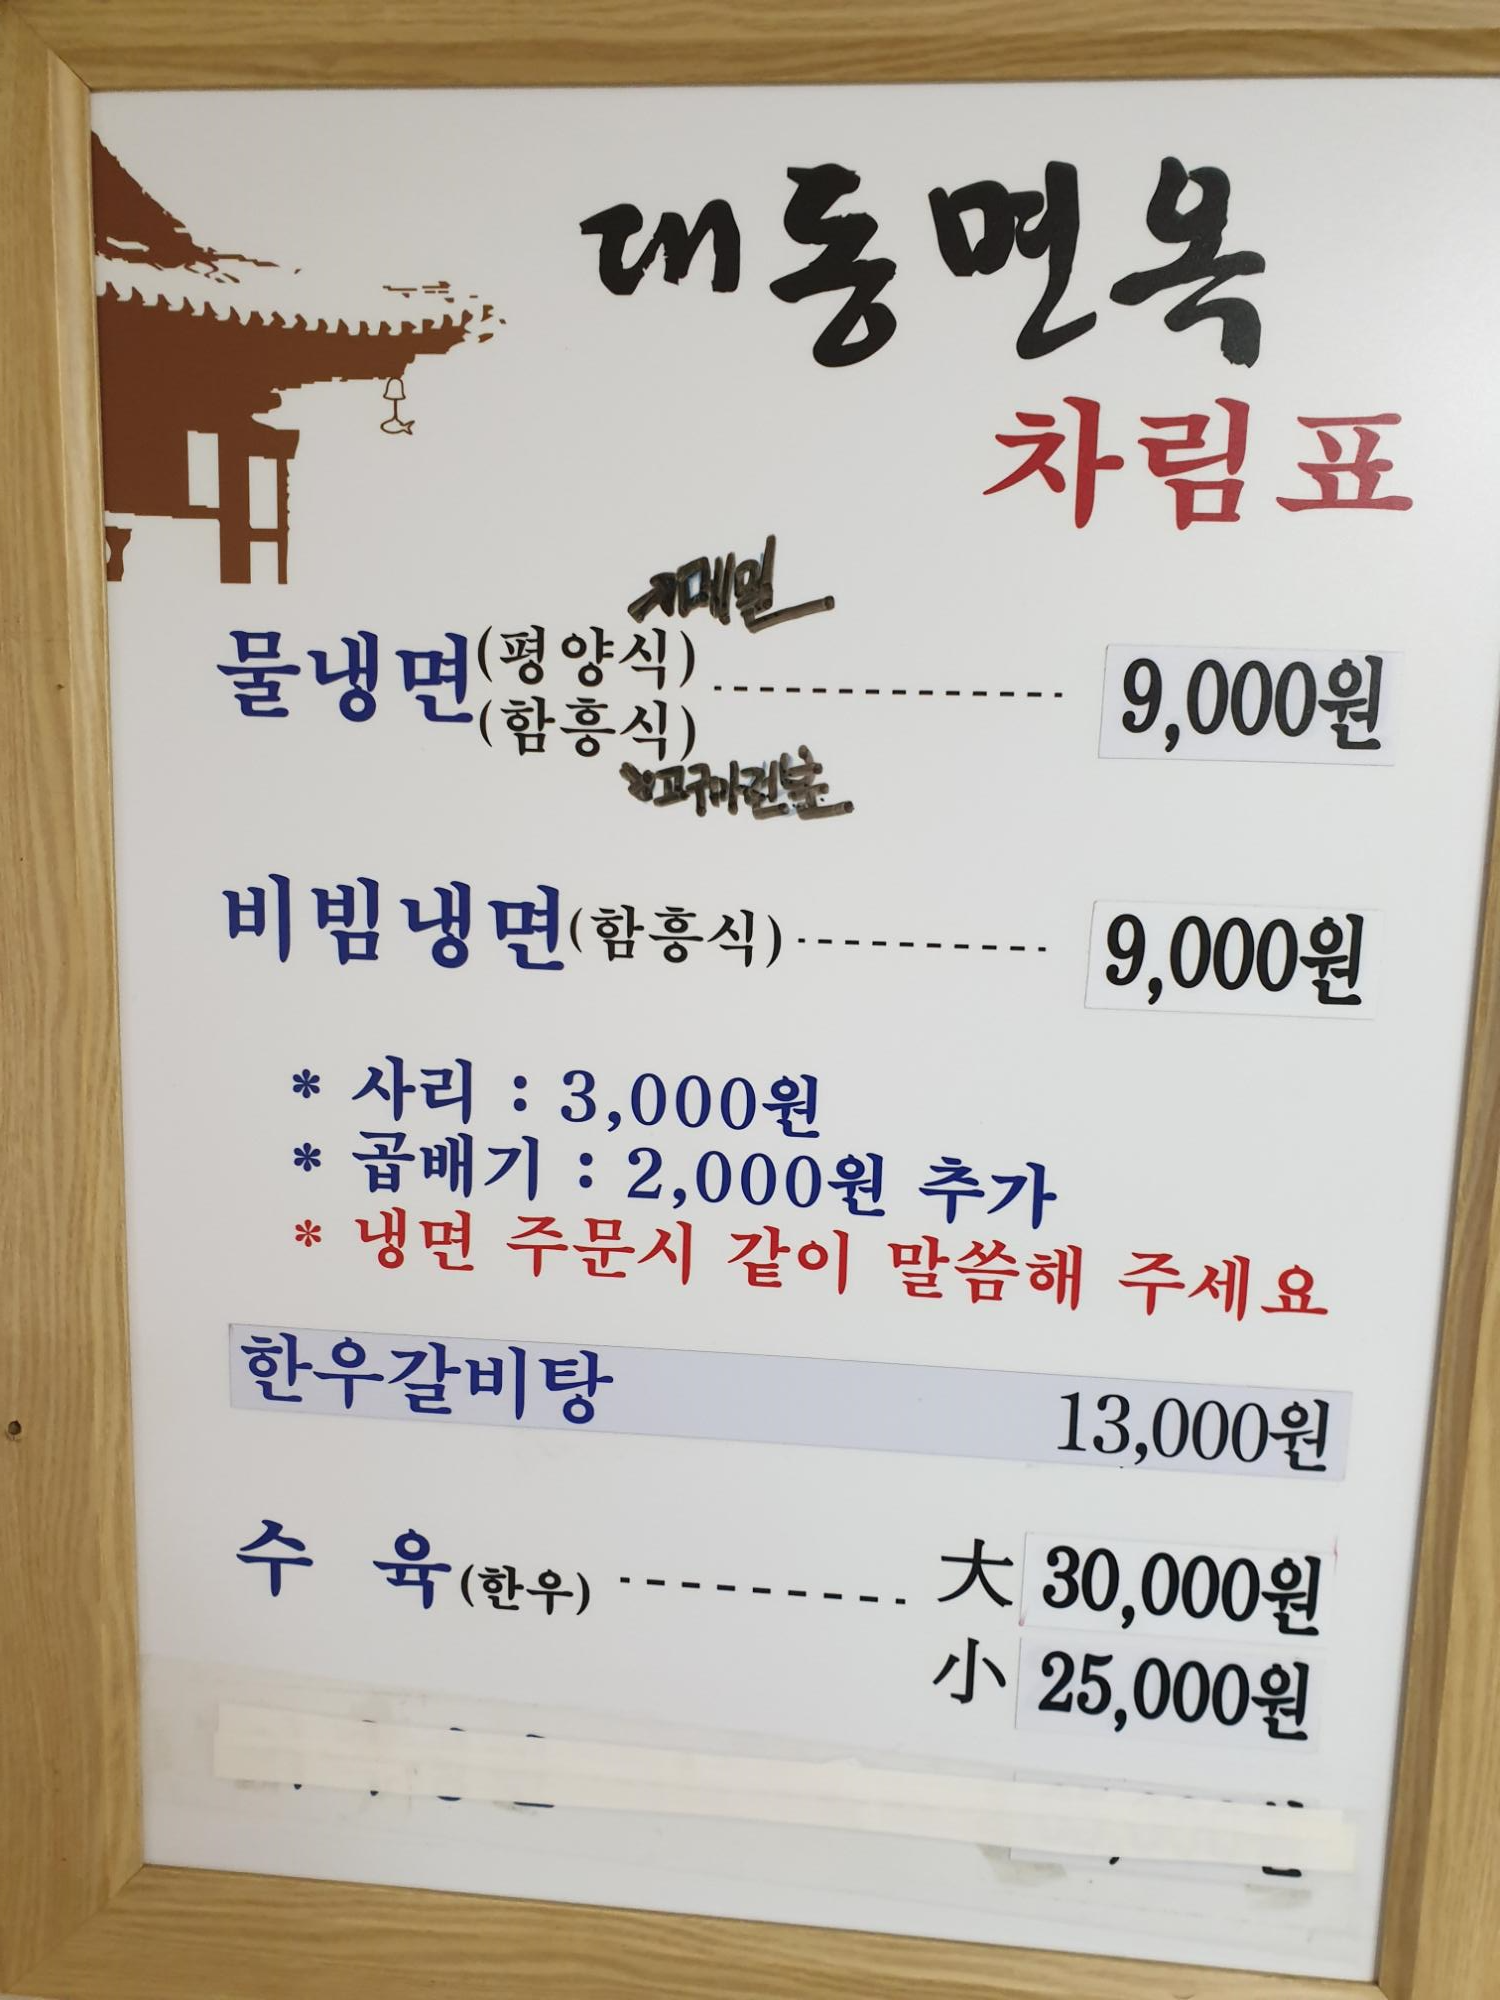 대동면옥
차림표
메밀
물냉면(평양식) 9,000원
(함흥식)
고구마전분
비빔냉면(함흥식) 9,000원
* 사리 : 3,000원
* 곱배기 : 2,000원 추가
* 냉면 주문시 같이 말씀해 주세요
한우갈비탕 13,000원
수 육(한우) 大 30,000원
小 25,000원